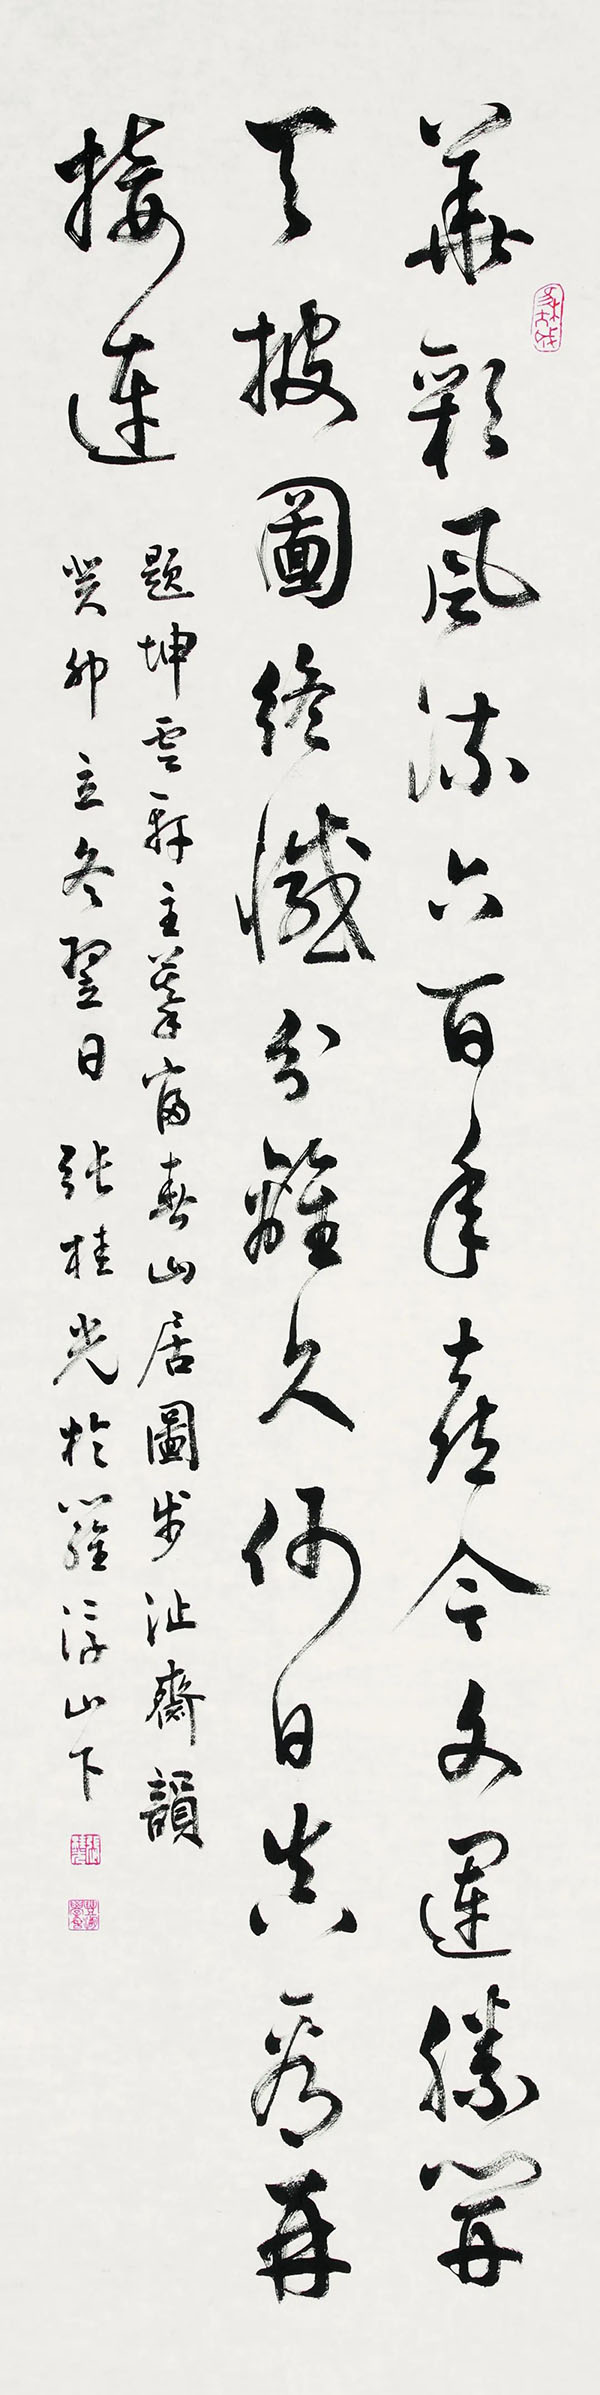 華彩風流六百年喜今文運勝開
天披圖終憾分離久何日真看再
接連
題坤雲軒主摹富春山居圖步沚齋韻
癸卯立冬翌日 張桂光於羅浮山下